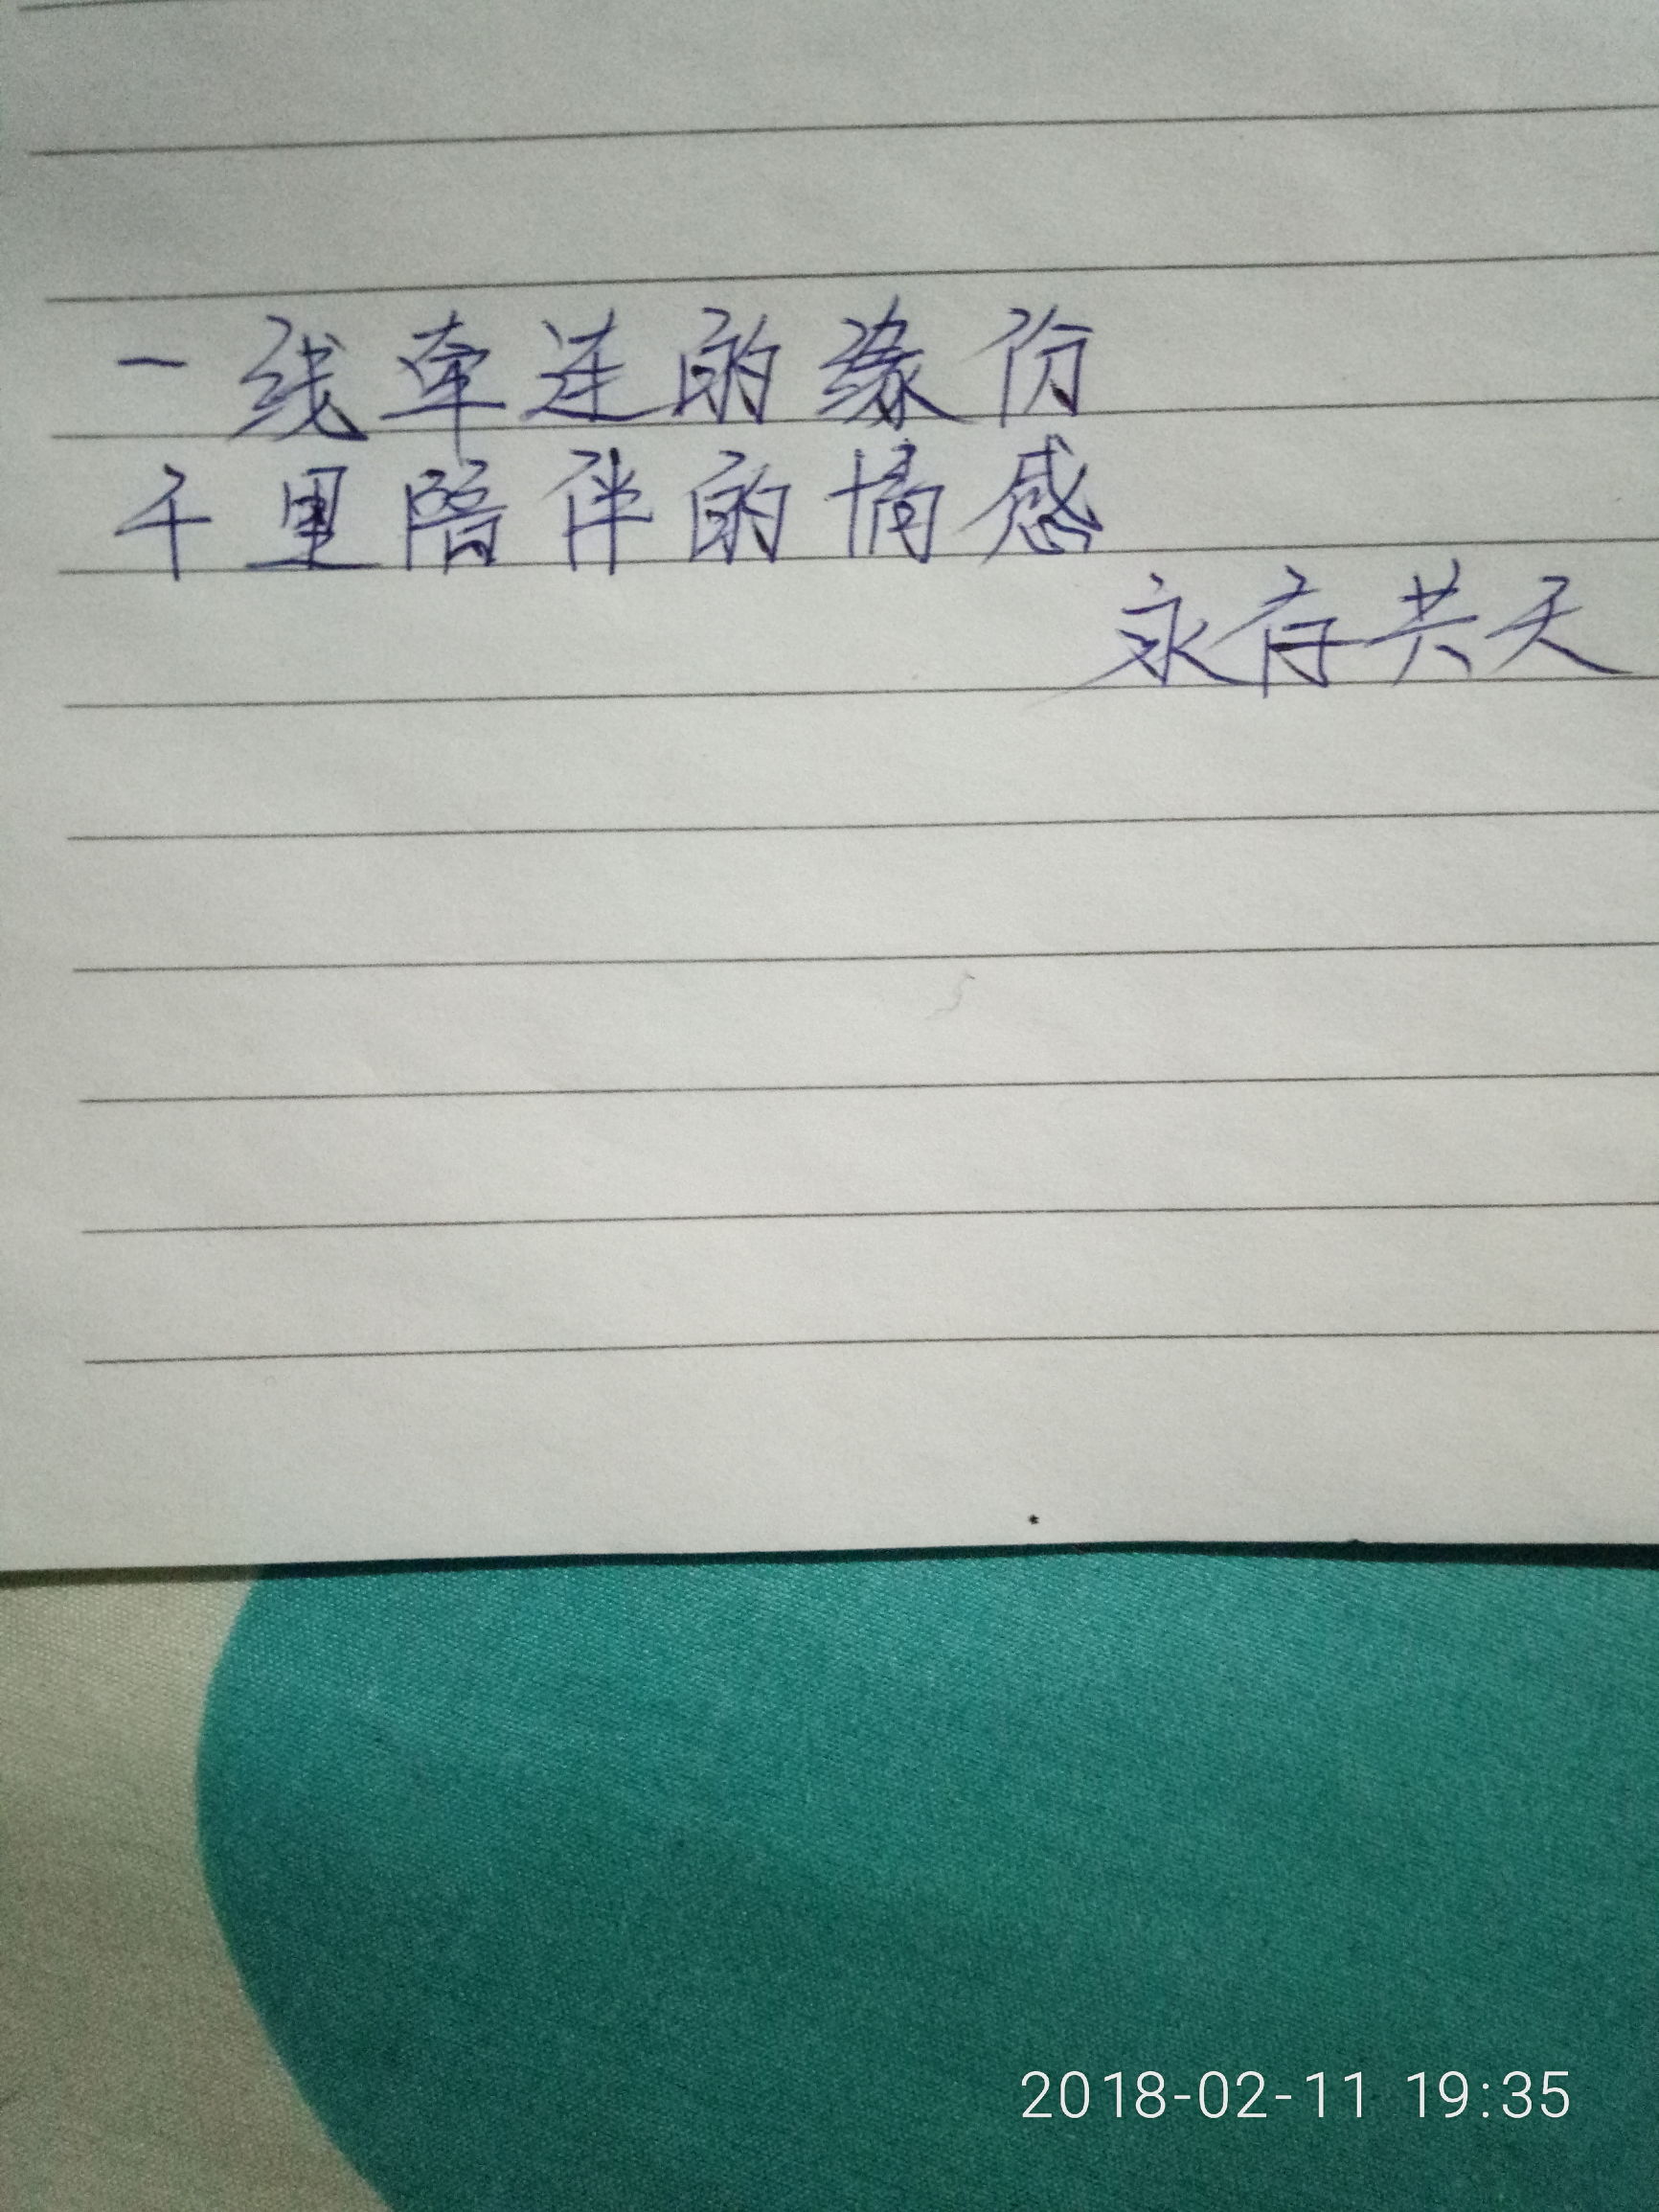 一线牵连的缘份
千里陪伴的情感
永存共天
2018-02-11 19:35